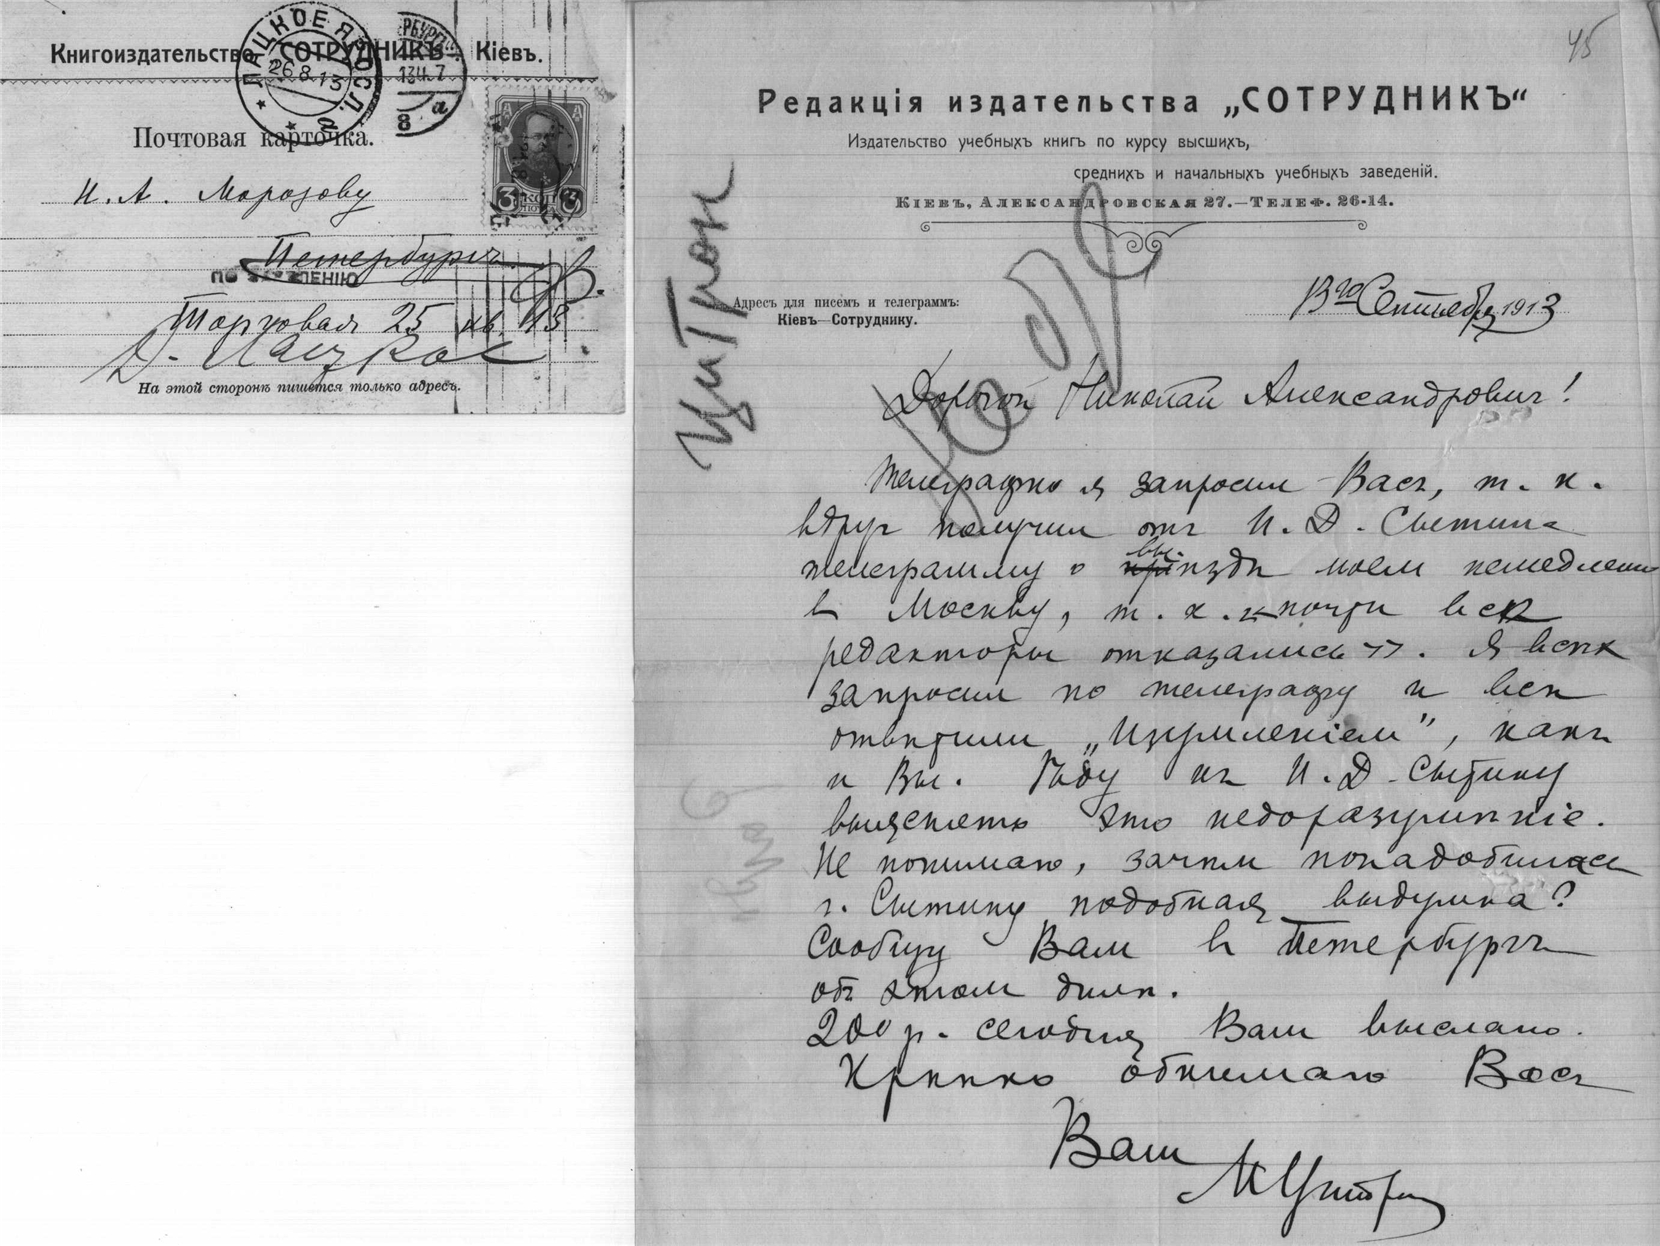 Книгоиздательство „СОТРУДНИКЪ“ Кіевъ.
ЛАЦКОЕ ЯРОСЛ.
26.8.13
Почтовая карточка.
3 КОП 3
Н. А. Морозову
Петербургъ
ПО ЗАЯВЛЕНІЮ
Торговая 25 кв. 13
На этой сторонѣ пишется только адресъ.
45
Редакція издательства „СОТРУДНИКЪ“
Издательство учебныхъ книгъ по курсу высшихъ,
среднихъ и начальныхъ учебныхъ заведеній.
Кіевъ, Александровская 27.—Телеф. 26-14.
Адресъ для писемъ и телеграммъ:
Кіевъ—Сотруднику.
13го Сентября 1913
Цитрон
Дорогой Николай Александрович!
Телеграфно я запросил Васъ, т. к.
вдруг получил отъ И. Д. Сытина
телеграмму о выѣзде моем немедленно
в Москву, т. к. «почти всѣ
редакторы отказались». Я всѣх
запросил по телеграфу и всѣ
отвѣтили „Изумленіем“, какъ
и Вы. Ѣду къ И. Д. Сытину
выяснять это недоразумѣніе.
Не понимаю, зачѣм понадобилась
г. Сытину подобная выдумка?
Сообщу Вам в Петербургъ
об этом дѣлѣ.
200 р. сегодня Вам выслано.
Крѣпко обнимаю Васъ
Ваш
М Цитрон